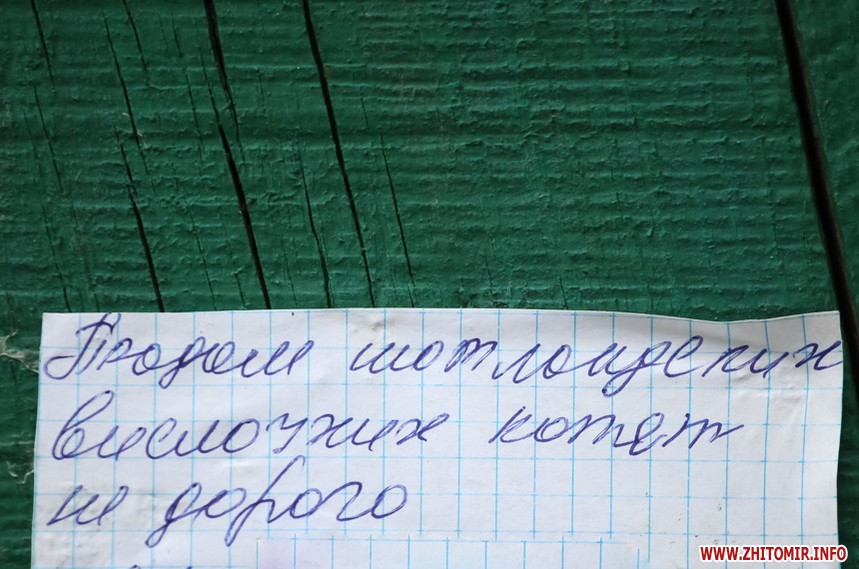 Продам шотландских
вислоухих котят
не дорого
WWW.ZHITOMIR.INFO